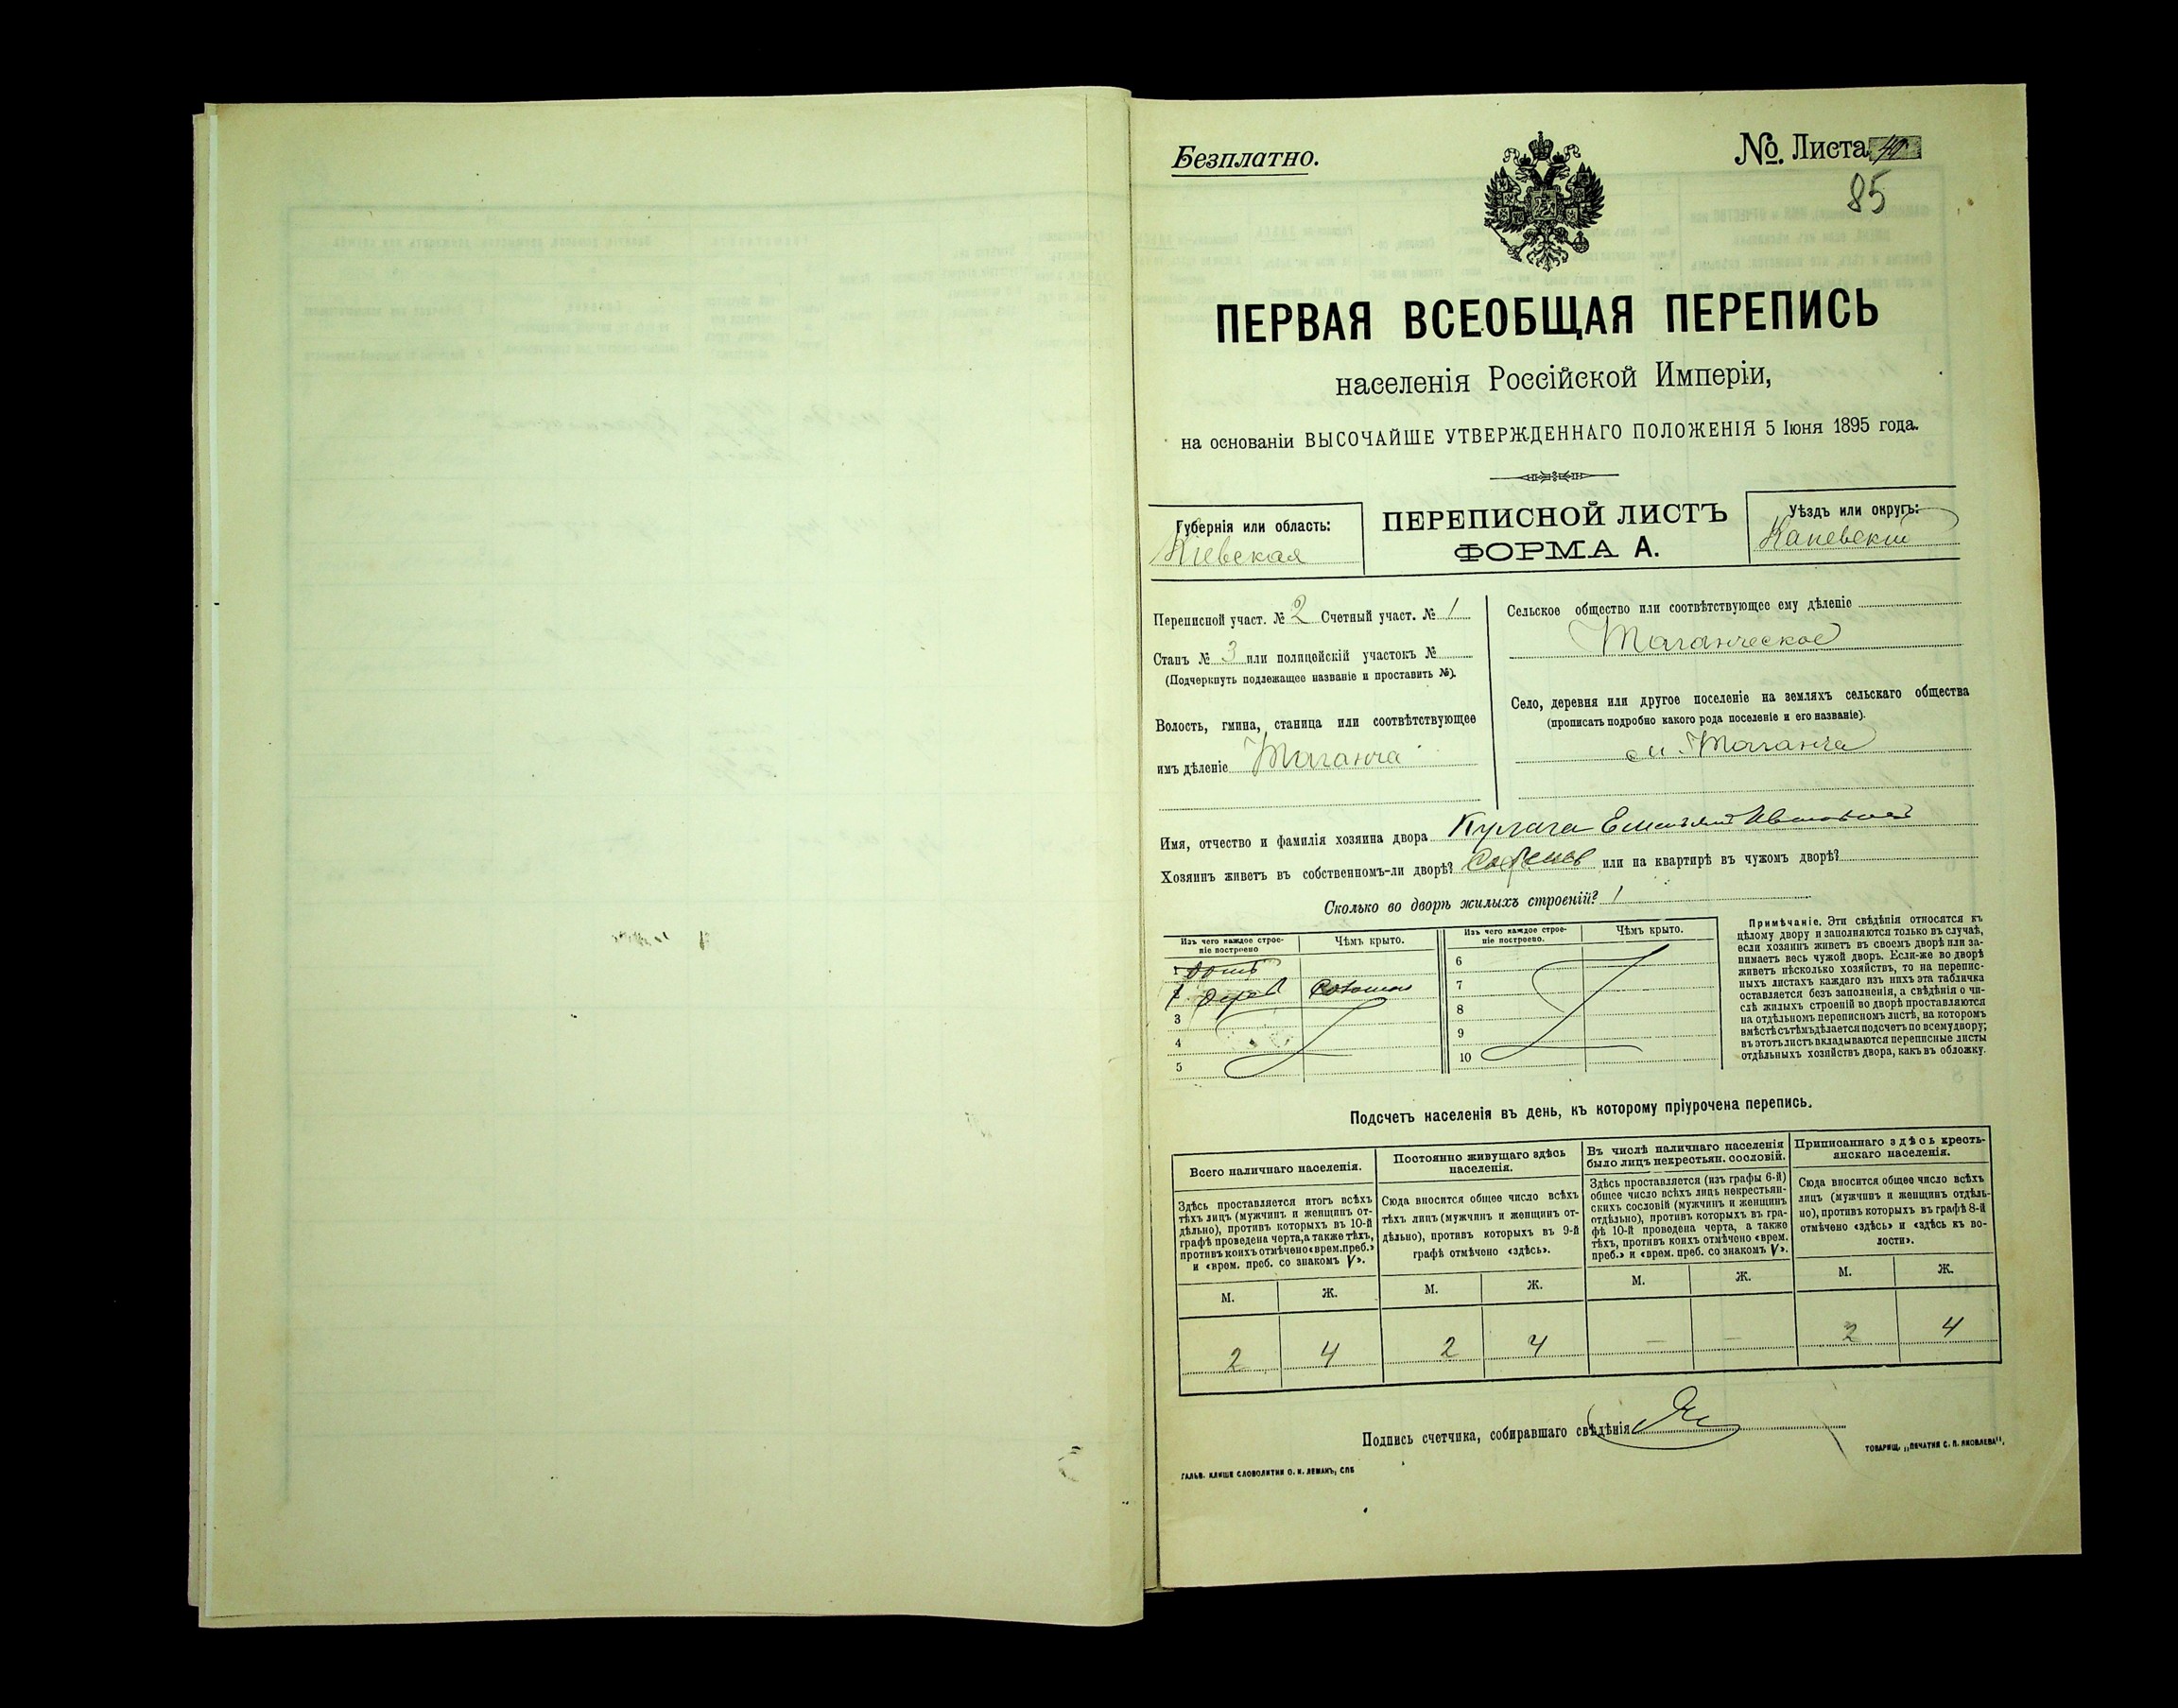 Безплатно.
№ Листа
85
ПЕРВАЯ ВСЕОБЩАЯ ПЕРЕПИСЬ
населенія Россійской Имперіи,
на основаніи ВЫСОЧАЙШЕ УТВЕРЖДЕННАГО ПОЛОЖЕНІЯ 5 Іюня 1895 года.
Губернія или область:
Кіевская
ПЕРЕПИСНОЙ ЛИСТЪ
ФОРМА А.
Уѣздъ или округъ:
Каневскій
Переписной участ. № 2 Счетный участ. № 1
Станъ № 3 или полицейскій участокъ №
(Подчеркнуть подлежащее названіе и проставить №).
Волость, гмина, станица или соотвѣтствующее
имъ дѣленіе Таганча
Сельское общество или соотвѣтствующее ему дѣленіе
Таганческое
Село, деревня или другое поселеніе на земляхъ сельскаго общества
(прописать подробно какого рода поселеніе и его названіе).
м. Таганча
Имя, отчество и фамилія хозяина двора
Хозяинъ живетъ въ собственномъ-ли дворѣ? или на квартирѣ въ чужомъ дворѣ?
Сколько во дворѣ жилыхъ строеній? 1
Изъ чего каждое строе-
ніе построено
Чѣмъ крыто.
1
1 дерев соломой
3
4
5
Изъ чего каждое строе-
ніе построено.
Чѣмъ крыто.
6
7
8
9
10
Примѣчаніе. Эти свѣдѣнія относятся къ
цѣлому двору и заполняются только въ случаѣ,
если хозяинъ живетъ въ своемъ дворѣ или за-
нимаетъ весь чужой дворъ. Если-же во дворѣ
живетъ нѣсколько хозяйствъ, то на перепис-
ныхъ листахъ каждаго изъ нихъ эта табличка
оставляется безъ заполненія, а свѣдѣнія о чи-
слѣ жилыхъ строеній во дворѣ проставляются
на отдѣльномъ переписномъ листѣ, на которомъ
вмѣстѣ съ тѣмъ дѣлается подсчетъ по всему двору;
въ этотъ листъ вкладываются переписные листы
отдѣльныхъ хозяйствъ двора, какъ въ обложку.
Подсчетъ населенія въ день, къ которому пріурочена перепись.
Всего наличнаго населенія.
Здѣсь проставляется итогъ всѣхъ
тѣхъ лицъ (мужчинъ и женщинъ от-
дѣльно), противъ которыхъ въ 10-й
графѣ проведена черта, а также тѣхъ,
противъ коихъ отмѣчено «врем. преб.»
и «врем. преб. со знакомъ V».
М. Ж.
2 4
Постоянно живущаго здѣсь
населенія.
Сюда вносится общее число всѣхъ
тѣхъ лицъ (мужчинъ и женщинъ от-
дѣльно), противъ которыхъ въ 9-й
графѣ отмѣчено «здѣсь».
М. Ж.
2 4
Въ числѣ наличнаго населенія
было лицъ некрестьян. сословій.
Здѣсь проставляется (изъ графы 6-й)
общее число всѣхъ лицъ некрестьян-
скихъ сословій (мужчинъ и женщинъ
отдѣльно), противъ которыхъ въ гра-
фѣ 10-й проведена черта, а также
тѣхъ, противъ коихъ отмѣчено «врем.
преб.» и «врем. преб. со знакомъ V».
М. Ж.
— —
Приписаннаго здѣсь кресть-
янскаго населенія.
Сюда вносится общее число всѣхъ
лицъ (мужчинъ и женщинъ отдѣль-
но), противъ которыхъ въ графѣ 8-й
отмѣчено «здѣсь» и «здѣсь къ во-
лости».
М. Ж.
2 4
Подпись счетчика, собиравшаго свѣдѣнія
ГАЛЬВ. КЛИШЕ СЛОВОЛИТНИ О. И. ЛЕМАНЪ, СПБ
ТОВАРИЩ. „ПЕЧАТНЯ С. П. ЯКОВЛЕВА".